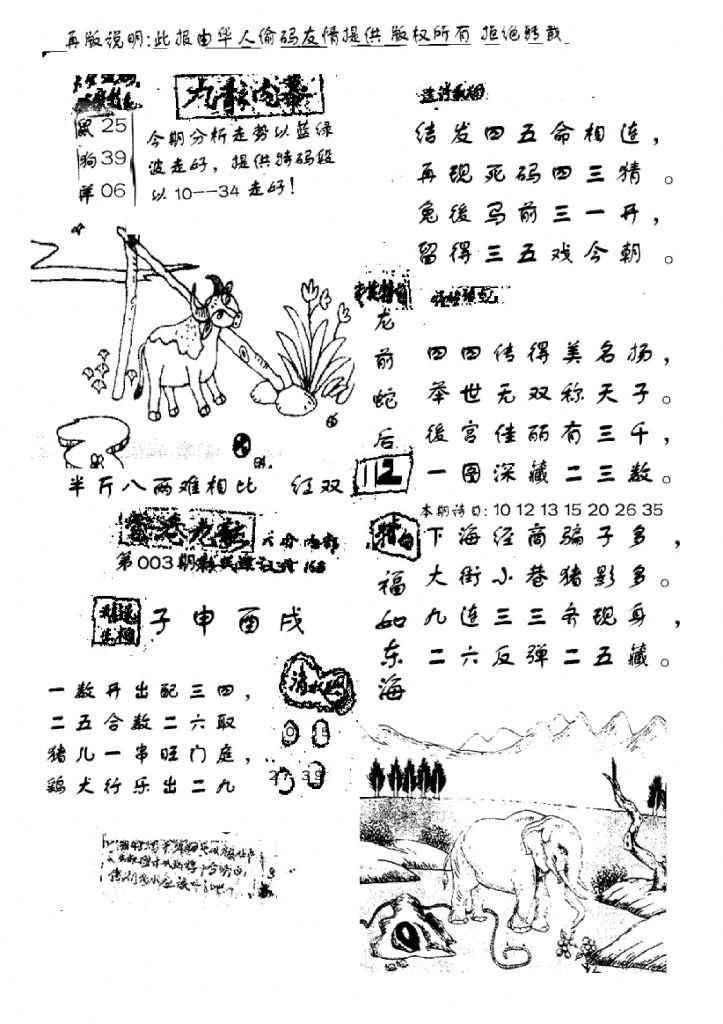 再版说明:此报由华人偷码友情提供 版权所有 拒绝转载
九龍内幕
鼠 25
狗 39
羊 06
今期分析走势以蓝绿
波走好，提供特码段
以10--34走好！
结发四五命相连，
再现死码四三猜。
兔後马前三一开，
留得三五戏今朝。
龙前蛇后
四四传得美名扬，
举世无双称天子。
後宫佳丽有三千，
一图深藏二三数。
112
本期诗曰: 10 12 13 15 20 26 35
半斤八两难相比 红双
第003期
子申酉戌
下海经商骗子多，
大街小巷猪影多。
九连三三齐现身，
二六反弹二五藏。
福如东海
一数开出配三四，
二五合数二六取
猪儿一串旺门庭，
鸡犬行乐出二九